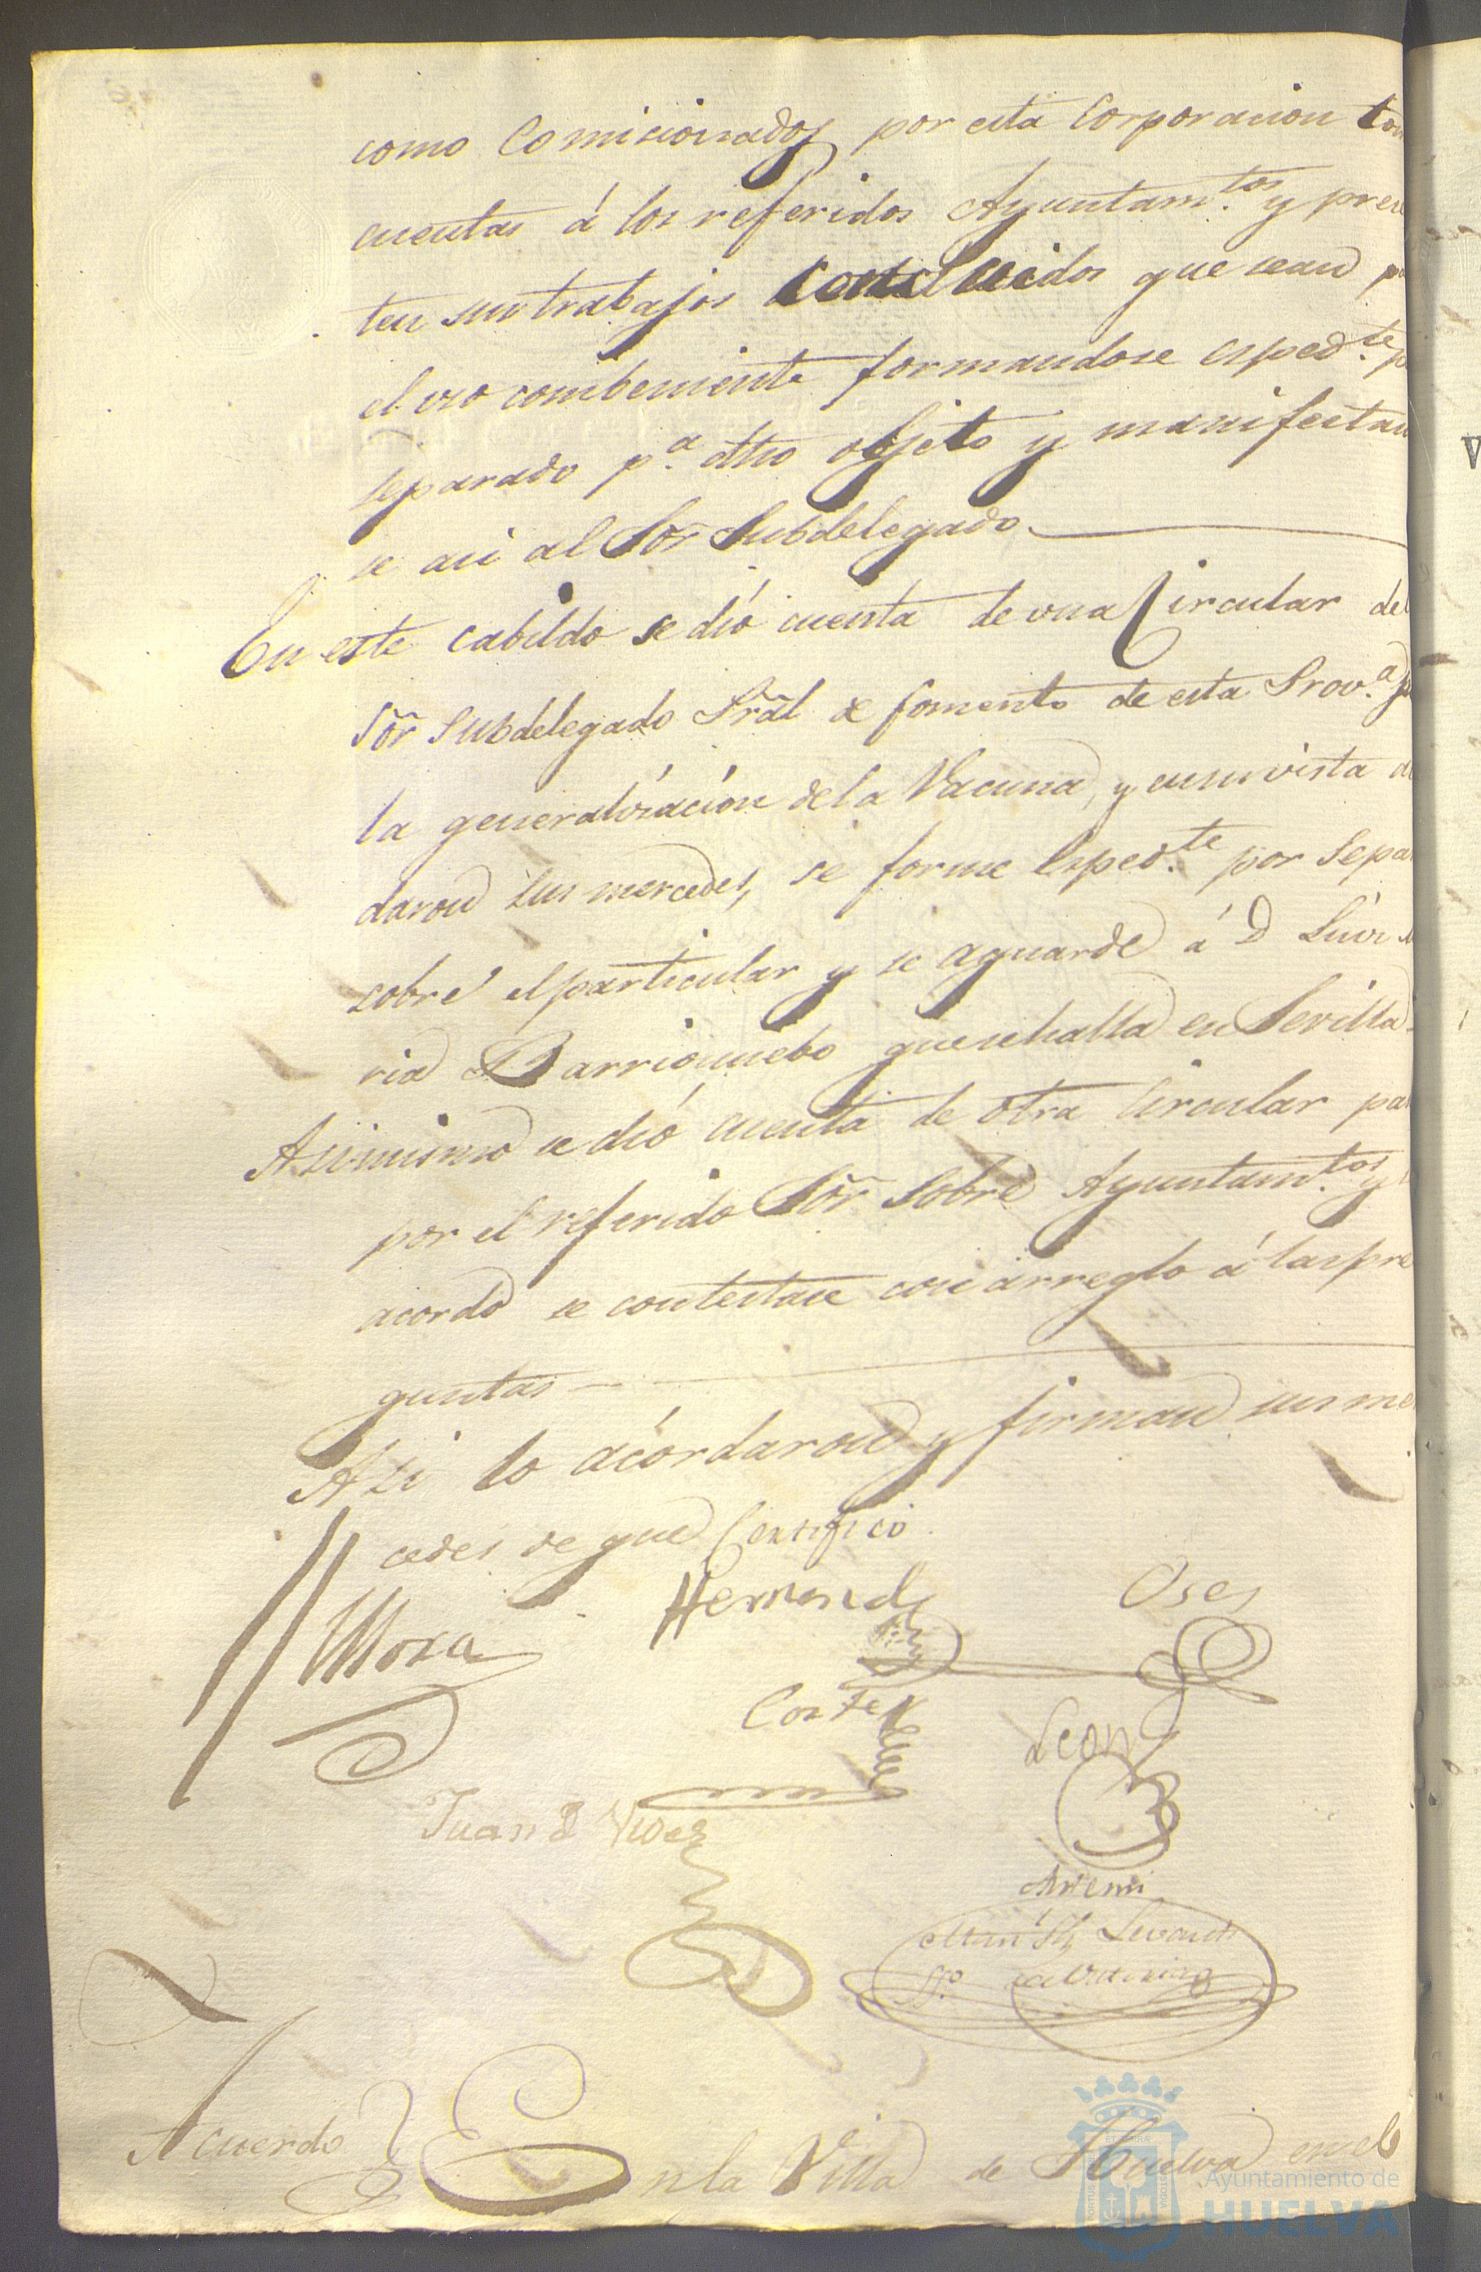 como Comicionados por esta Corporacion tom
cuentas á los referidos Ayuntam.tos y presen
ten sus trabajos concluidos que sean p
el uso combeniente formandose esped.te p
separado p.a dho objeto y manifestan
se asi al Sor Subdelegado
En este cabildo se dió cuenta de una Circular del
Sor Subdelegado Pral de fomento de esta Prov.a p
la generalisación de la Vacuna, y en su vista a
daron sus mercedes, se forme Esped.te por Sepa
sobre el particular y se aguarde á D Luis
ria Barrionuebo que se halla en Sevilla
Asimismo se dió cuenta de otra Circular pa
por el referido Sor Sobre Ayuntam.tos y
acordó se contestase con arreglo á las pre
guntas
Asi lo acordaron y firman sus me
cedes de que Certifico
Mora
Hernands
Oses
Cortes
Leon
Juan
Antemi
Acuerdo
En la Villa de Huelva en el
Ayuntamiento de
HUELVA
V